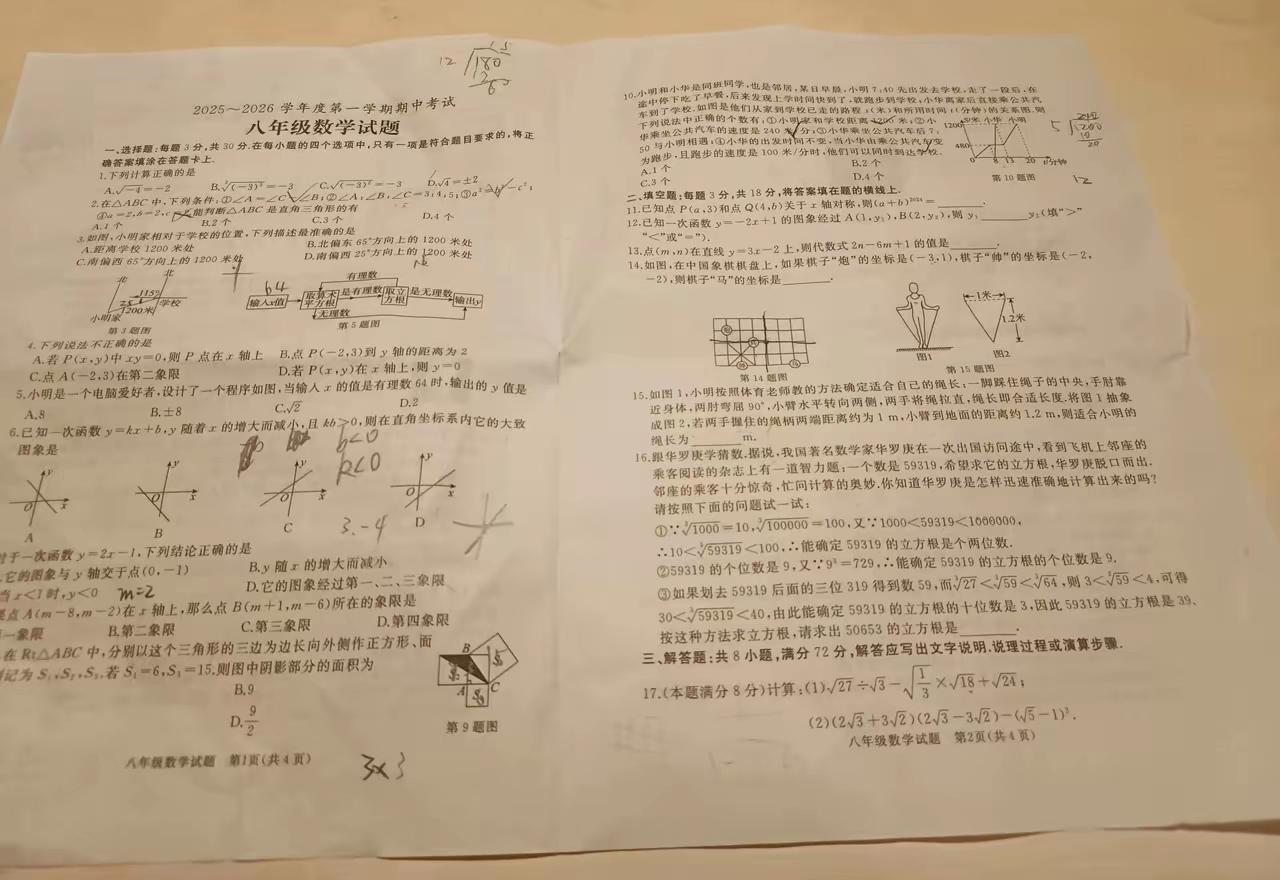 2025～2026 学年度第一学期期中考试
八年级数学试题
一、选择题:每题 3 分,共 30 分.在每小题的四个选项中,只有一项是符合题目要求的,将正
确答案填涂在答题卡上.
1.下列计算正确的是
A.√-4=-2 B.√(-3)²=-3 C.√(-3)²=-3 D.√4=±2
2.在△ABC 中,下列条件:①∠A=∠C-∠B;②∠A:∠B:∠C=3:4:5;③a²=b²-c²;
④a=2,b=2,c= 能判断△ABC 是直角三角形的有
A.1 个 B.2 个 C.3 个 D.4 个
3.如图,小明家相对于学校的位置,下列描述最准确的是
A.距离学校 1200 米处 B.北偏东 65°方向上的 1200 米处
C.南偏西 65°方向上的 1200 米处 D.南偏西 25°方向上的 1200 米处
北 北 115° 学校 1200米 小明家
第 3 题图
64
输入x值 取算术平方根 是有理数 取立方根 是无理数 输出y
有理数
无理数
第 5 题图
4.下列说法不正确的是
A.若 P(x,y)中 xy=0,则 P 点在 x 轴上 B.点 P(-2,3)到 y 轴的距离为 2
C.点 A(-2,3)在第二象限 D.若 P(x,y)在 x 轴上,则 y=0
5.小明是一个电脑爱好者,设计了一个程序如图,当输入 x 的值是有理数 64 时,输出的 y 值是
A.8 B.±8 C.√2 D.2
6.已知一次函数 y=kx+b,y 随着 x 的增大而减小,且 kb>0,则在直角坐标系内它的大致
图象是
b<0
k<0
A B C D
3.-4
对于一次函数 y=2x-1,下列结论正确的是
.它的图象与 y 轴交于点(0,-1) B.y 随 x 的增大而减小
当 x<1 时,y<0 D.它的图象经过第一、二、三象限
m=2
点 A(m-8,m-2)在 x 轴上,那么点 B(m+1,m-6)所在的象限是
一象限 B.第二象限 C.第三象限 D.第四象限
在 Rt△ABC 中,分别以这个三角形的三边为边长向外侧作正方形、面
记为 S₁,S₂,S₃.若 S₁=6,S₃=15.则图中阴影部分的面积为
B.9
D.9/2
第 9 题图
八年级数学试题 第1页(共 4 页)
3×3
12 180
10.小明和小华是同班同学,也是邻居,某日早晨,小明 7:40 先出发去学校,走了一段后,在
途中停下吃了早餐,后来发现上学时间快到了,就跑步到学校;小华离家后直接乘公共汽
车到了学校.如图是他们从家到学校已走的路程 s(米)和所用时间 t(分钟)的关系图.则
下列说法中正确的个数有:①小明家和学校距离 1200 米;②小
华乘坐公共汽车的速度是 240 米/分;③小华乘坐公共汽车后 7:
50 与小明相遇;④小华的出发时间不变,当小华由乘公共汽车变
为跑步,且跑步的速度是 100 米/分时,他们可以同时到达学校.
A.1 个 B.2 个
C.3 个 D.4 个
1200 480 s/米 小华 小明 0 8 13 20 t/分钟
第 10 题图
12
二、填空题:每题 3 分,共 18 分,将答案填在题的横线上.
11.已知点 P(a,3)和点 Q(4,b)关于 x 轴对称,则(a+b)²⁰²⁴=
12.已知一次函数 y=-2x+1 的图象经过 A(1,y₁),B(2,y₂),则 y₁ y₂(填“>”
“<”或“=”).
13.点(m,n)在直线 y=3x-2 上,则代数式 2n-6m+1 的值是 .
14.如图,在中国象棋棋盘上,如果棋子“炮”的坐标是(-3,1),棋子“帅”的坐标是(-2,
-2),则棋子“马”的坐标是 .
1米 1.2米
图1 图2
第 14 题图 第 15 题图
15.如图 1,小明按照体育老师教的方法确定适合自己的绳长:一脚踩住绳子的中央,手肘靠
近身体,两肘弯屈 90°,小臂水平转向两侧,两手将绳拉直,绳长即合适长度.将图 1 抽象
成图 2,若两手握住的绳柄两端距离约为 1 m,小臂到地面的距离约 1.2 m,则适合小明的
绳长为 m.
16.跟华罗庚学猜数.据说,我国著名数学家华罗庚在一次出国访问途中,看到飞机上邻座的
乘客阅读的杂志上有一道智力题:一个数是 59319,希望求它的立方根,华罗庚脱口而出.
邻座的乘客十分惊奇,忙问计算的奥妙.你知道华罗庚是怎样迅速准确地计算出来的吗?
请按照下面的问题试一试:
①∵∛1000=10,∛100000=100,又∵1000<59319<1000000,
∴10<∛59319<100,∴能确定 59319 的立方根是个两位数.
②59319 的个位数是 9,又∵9³=729,∴能确定 59319 的立方根的个位数是 9.
③如果划去 59319 后面的三位 319 得到数 59,而∛27<∛59<∛64,则 3<∛59<4,可得
30<∛59319<40,由此能确定 59319 的立方根的十位数是 3,因此 59319 的立方根是 39.
按这种方法求立方根,请求出 50653 的立方根是 .
三、解答题:共 8 小题,满分 72 分,解答应写出文字说明.说理过程或演算步骤.
17.(本题满分 8 分)计算:(1)√27÷√3-√(1/3)×√18+√24;
(2)(2√3+3√2)(2√3-3√2)-(√5-1)².
八年级数学试题 第2页(共 4 页)